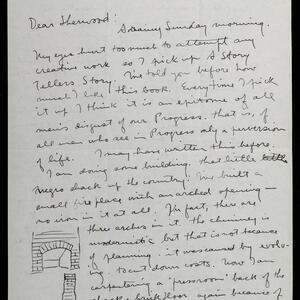 Dear Sherwood:
A rainy Sunday morning.
My eyes hurt too much to attempt any
creative work so I pick up A Story
Tellers Story. I've told you before how
much I like this book. Everytime I pick
it up I think it is an epitome of all
men's disgust of our Progress. that is, of
all men who see in Progress only a perversion
of life. I may have written this before.
I am doing some building. that little
negro shack up the country: I've built a
small fire place with an arched opening —
no iron in it at all. In fact, there are
three arches in it. the chimney is
modernistic but that is not because
of planning: it was caused by
to cut down costs. Now I am
carpentering, a "pressroom" back of the
a brick floor again because of